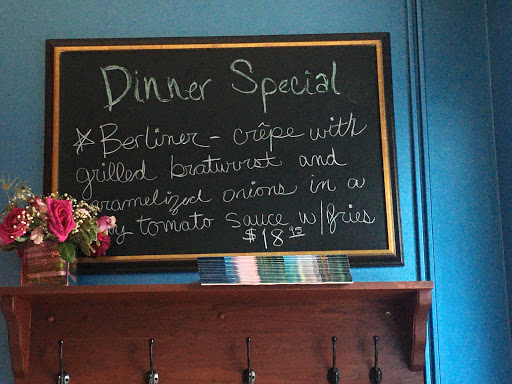 Dinner Special
* Berliner - crêpe with
grilled bratwurst and
caramelized onions in a
tomato sauce w/fries
$18.95